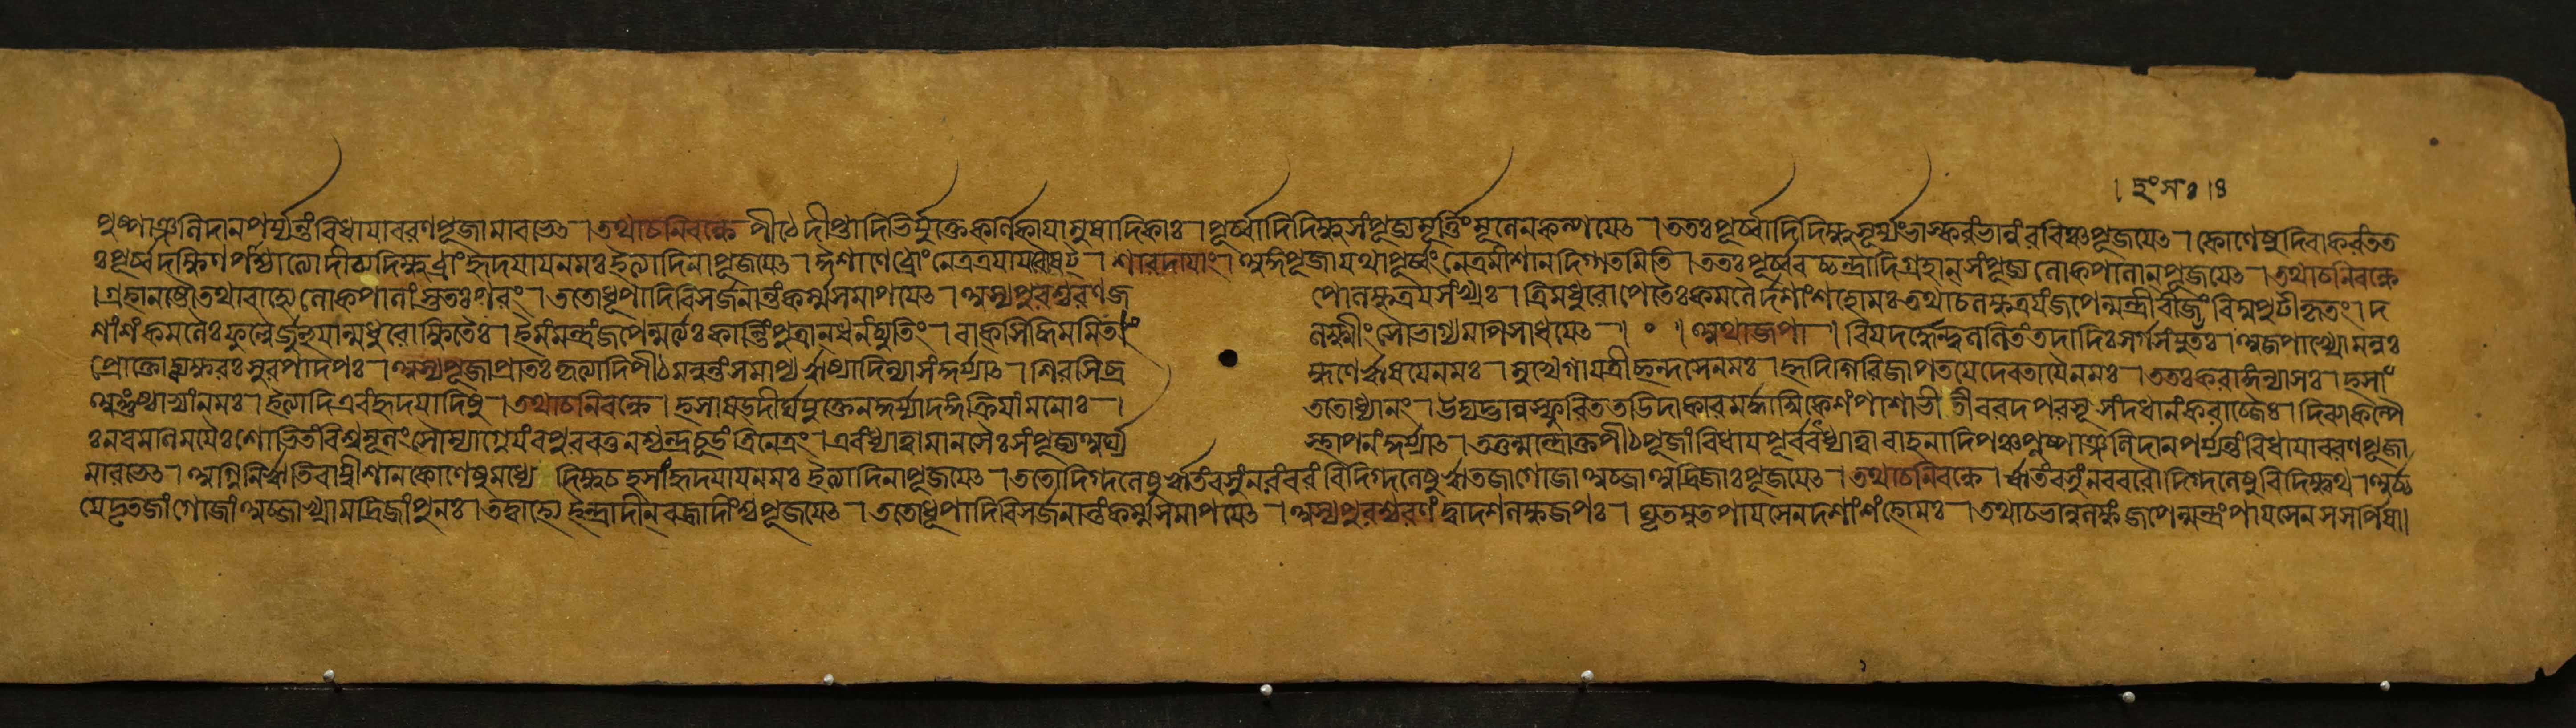 । হংসঃ ।ঃ
পুষ্পাঞ্জলিদানপর্য্যন্তং বিধায়াবরণপূজামারভেৎ । তথাচনিবন্ধে পীঠে দীপ্তাদিভির্যুক্তে কর্ণিকায়ামুষাদিকাঃ । পূর্ব্বাদিদিক্ষু সংপূজ্য মূর্ত্তিং মূলেন কল্পয়েৎ । ততঃ পূর্ব্বাদিদিক্ষু সূর্য্যং ভাস্করং ভানুং রবিঞ্চ পূজয়েৎ । কোণেষু দিবাকরং তত
ঃ পূর্ব্বদক্ষিণপশ্চি হৃদয়ায়নমঃ ইত্যাদিনা পূজয়েৎ । নেত্রত্রয়ায় । শারদায়াং । অঙ্গপূজা যথাপূর্ব্বং নেত্রমীশানদিগ্গতমিতি । ততঃ পূর্ব্ববচ্চন্দ্রাদিগ্রহান্ সংপূজ্য লোকপালান্ পূজয়েৎ । তথাচনিবন্ধে
। গ্রহানষ্টৌ তথাবাহ্যে লোকপালাং স্ততঃপরং । ততোধূপাদিবিসর্জনান্তং কর্ম্মসমাপয়েৎ । অস্যপুরশ্চরণজ পোলক্ষত্রয়সংখ্যঃ । ত্রিমধুরোপেতৈঃ কমলৈর্দশাংশহোমঃ তথাচ লক্ষত্রয়ং জপেন্মন্ত্রী বীজং বিম্বপুটীকৃতং । দ
শাংশং কমলৈঃ ফুল্লৈর্জুহুয়ান্মধুরোক্ষিতৈঃ । ইমং মন্ত্রং জপেন্মর্ত্যঃ কান্তিং পুত্রান্ ধনং দ্যুতিং । বাক্সিদ্ধি লক্ষ্মীং সৌভাগ্যমাপসাধয়েৎ । ০ । অথাজপা । বিয়দর্দ্ধেন্দুললিতং তদাদিঃ সর্গসংযুতঃ । অজপাখ্যো মনুঃ
প্রোক্তো দ্ব্যক্ষরঃ সুরপাদপঃ । অস্যপূজাপ্রাতঃকৃত্যাদিপীঠমন্বন্তং সমাপ্য ঋষ্যাদিন্যাসং কুর্য্যাৎ । শিরসিব্র হ্মণেঋষয়েনমঃ । মুখেগায়ত্রীছন্দসেনমঃ । হৃদিগিরিজাপতয়েদেবতায়ৈনমঃ । ততঃ করাঙ্গন্যাসঃ । হ্সাং
অঙ্গুষ্ঠাভ্যাং নমঃ । ইত্যাদি এবং হৃদয়াদিষু । তথাচনিবন্ধে । হসাষড়্দীর্ঘযুক্তেন কুর্য্যাদঙ্গক্রিয়াং মনোঃ । ততোধ্যানং । উদ্যদ্ভানুস্ফুরিততড়িদাকারমর্দ্ধাম্বিকেশং পাশাভীতীবরদপরশূ সংদধানং করাব্জৈঃ । দিব্যাকল্পৈ
র্নবমণিময়ৈঃ শোভিতং বিশ্বমূলং সৌম্যাগ্নেয়ং বপুরবতু নশ্চন্দ্রচূড়ং ত্রিনেত্রং । এবং ধ্যাত্বা মানসৈঃ সংপূজ্য অর্ঘ্য স্থাপনং কুর্য্যাৎ । পীঠপূজাং বিধায় পূর্ব্ববদ্ধ্যাত্বা বাহনাদিপঞ্চপুষ্পাঞ্জলিদানপর্য্যন্তং বিধায়াবরণপূজা
মারভেৎ । অগ্নিনির্ঋতিবায়্বীশানকোণেষু মধ্যে দিক্ষুচ হ্সাং হৃদয়ায়নমঃ ইত্যাদিনা পূজয়েৎ । ততোদিগ্দলেষু ঋতং বসুং নরং বরং বিদিগ্দলেষু ঋতজাগোজা অব্জা অদ্রিজাঃ পূজয়েৎ । তথাচনিবন্ধে । ঋতং বসুং নরবরৌ দিগ্দলেষু বিদিক্ষ্বথ । অর্চ্চ
য়েদৃতজাং গোজাং অব্জাখ্যামদ্রিজাং পুনঃ । তদ্বাহ্যে ইন্দ্রাদীন্ বজ্রাদীংশ্চ পূজয়েৎ । ততোধূপাদিবিসর্জনান্তং কর্ম্মসমাপয়েৎ । অস্যপুরশ্চরণং দ্বাদশলক্ষজপঃ । ঘৃতপ্লুতপায়সেন দশাংশং হোমঃ । তথাচ ভানুলক্ষং জপেন্মন্ত্রং পায়সেন সসর্পিষা।